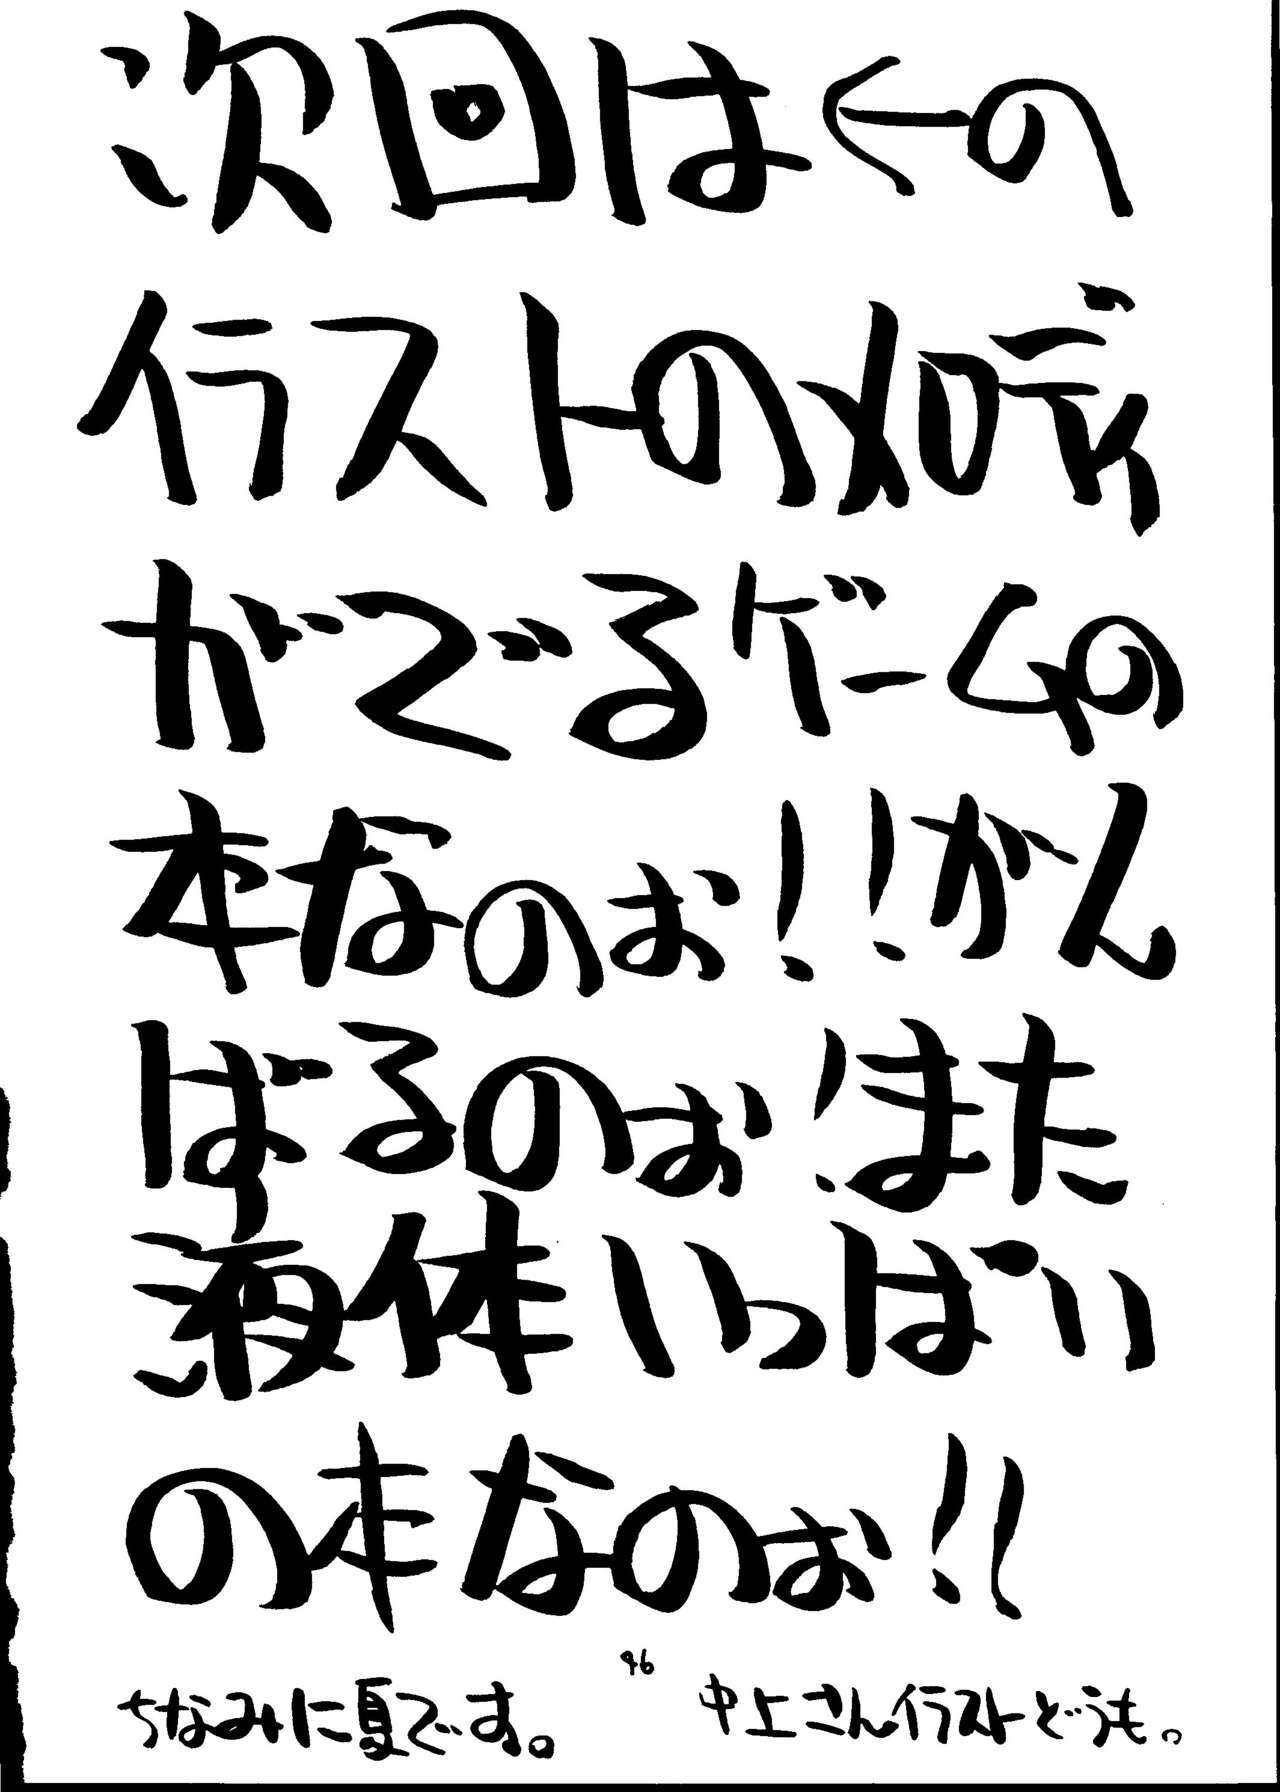 次回は←の
イラストのメロディ
がでるゲームの
本なのぉ!!がん
ばるのぉ!また
液体いっぱい
の本なのぉ!!
46
ちなみに夏です。 中上さんイラストどうも。